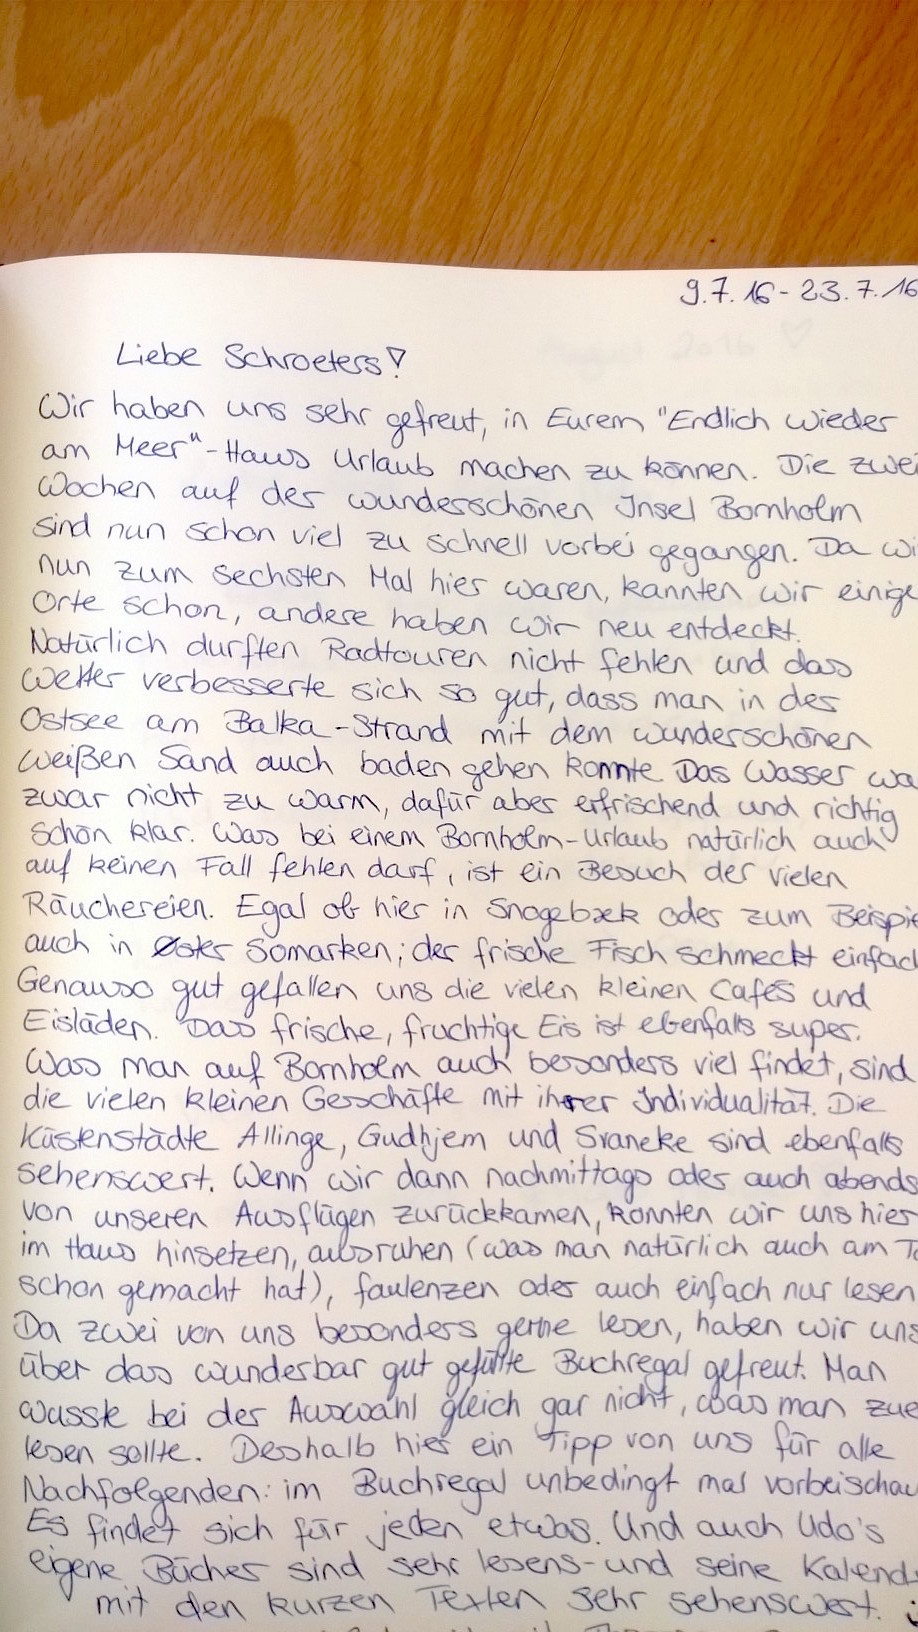 9.7.16 - 23.7.16
Liebe Schroeters!
Wir haben uns sehr gefreut, in Eurem "Endlich wieder
am Meer"-Haus Urlaub machen zu können. Die zwei
Wochen auf der wunderschönen Insel Bornholm
sind nun schon viel zu schnell vorbei gegangen. Da wi
nun zum sechsten Mal hier waren, kannten wir einige
Orte schon, andere haben wir neu entdeckt.
Natürlich durften Radtouren nicht fehlen und das
Wetter verbesserte sich so gut, dass man in der
Ostsee am Balka-Strand mit dem wunderschönen
weißen Sand auch baden gehen konnte. Das Wasser wa
zwar nicht zu warm, dafür aber erfrischend und richtig
schön klar. Was bei einem Bornholm-Urlaub natürlich auch
auf keinen Fall fehlen darf, ist ein Besuch der vielen
Räuchereien. Egal ob hier in Snogebæk oder zum Beispie
auch in Øster Somarken; der frische Fisch schmeckt einfach
Genauso gut gefallen uns die vielen kleinen Cafés und
Eisläden. Das frische, fruchtige Eis ist ebenfalls super.
Was man auf Bornholm auch besonders viel findet, sind
die vielen kleinen Geschäfte mit ihrer Individualität. Die
Küstenstädte Allinge, Gudhjem und Svaneke sind ebenfalls
sehenswert. Wenn wir dann nachmittags oder auch abends
von unseren Ausflügen zurückkamen, konnten wir uns hier
im Haus hinsetzen, ausruhen (was man natürlich auch am Ta
schon gemacht hat), faulenzen oder auch einfach nur lesen
Da zwei von uns besonders gerne lesen, haben wir uns
über das wunderbar gut gefüllte Buchregal gefreut. Man
wusste bei der Auswahl gleich gar nicht, was man zue
lesen sollte. Deshalb hier ein Tipp von uns für alle
Nachfolgenden: im Buchregal unbedingt mal vorbeischau
Es findet sich für jeden etwas. Und auch Udo's
eigene Bücher sind sehr lesens- und seine Kalend
mit den kurzen Texten sehr sehenswert.